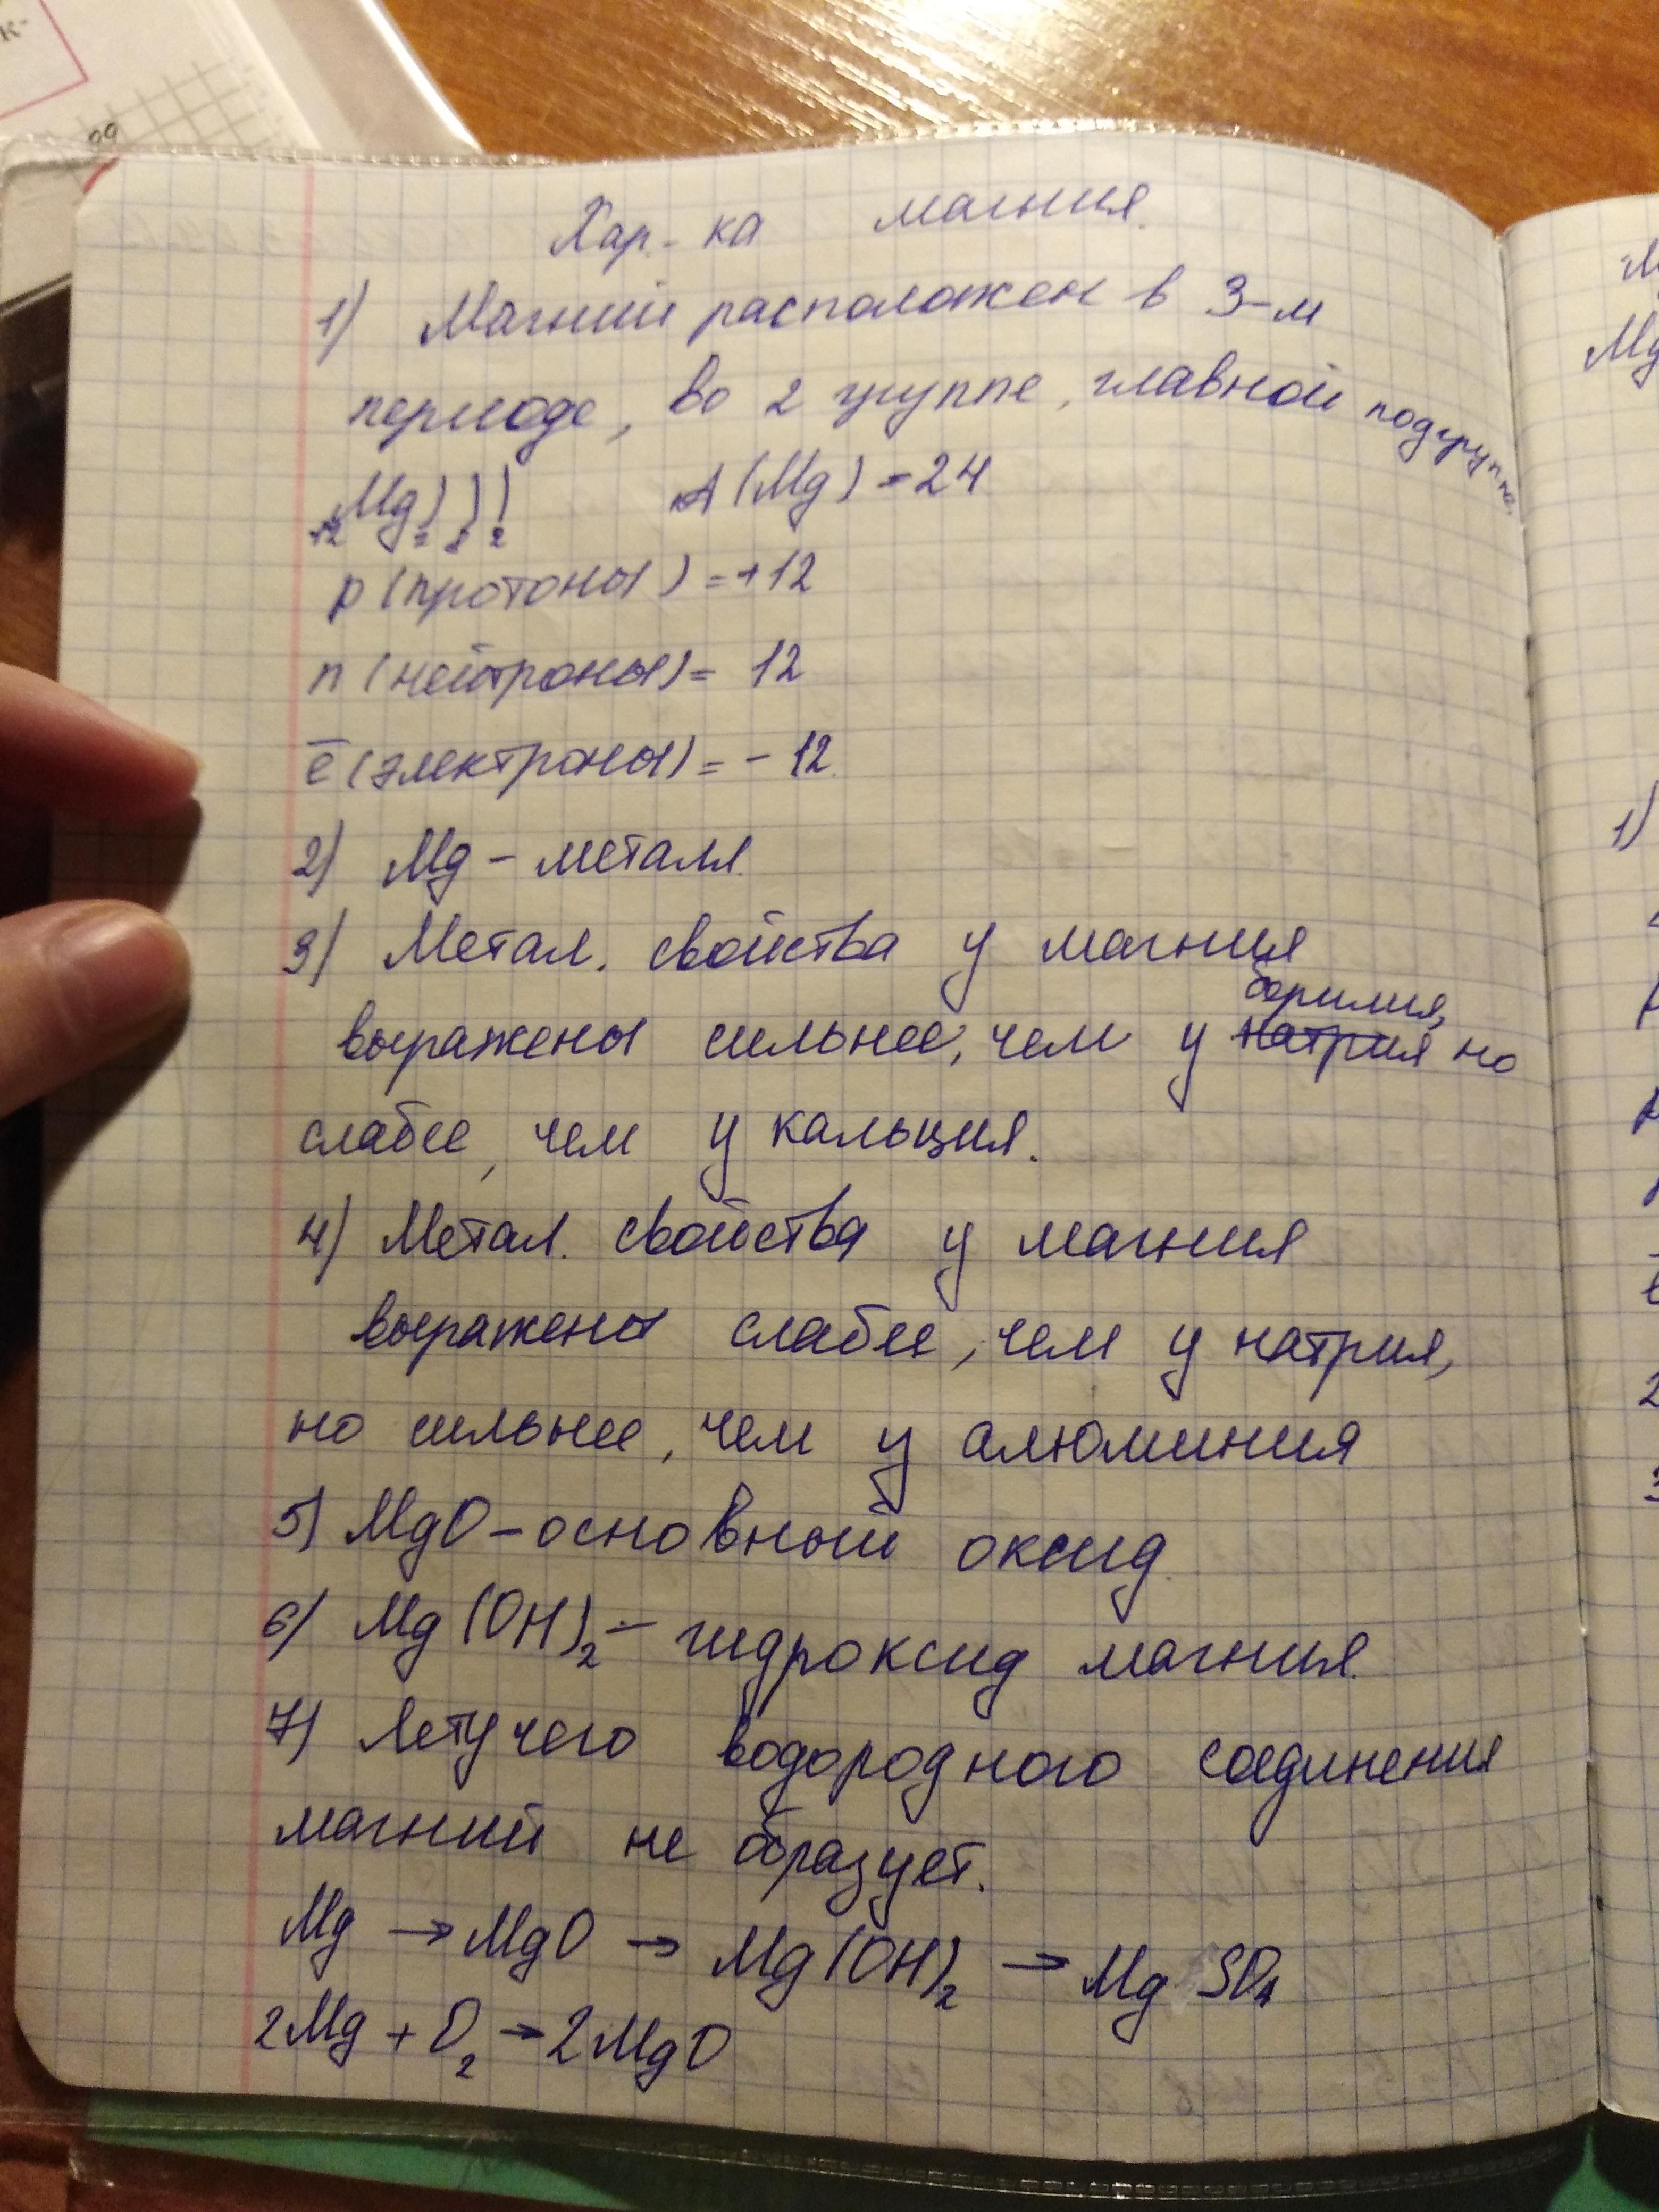 Хар-ка магния.
1) Магний расположен в 3-м
периоде, во 2 группе, главной подгруппе.
+12 Mg ) ) )
2 8 2
A (Mg) = 24
p (протоны) = +12
n (нейтроны) = 12
e̅ (электроны) = - 12.
2) Mg - металл.
3) Метал. свойства у магния
выражены сильнее, чем у ~~натрия~~ берилия, но
слабее, чем у кальция.
4) Метал. свойства у магния
выражены слабее, чем у натрия,
но сильнее, чем у алюминия
5) MgO - основный оксид.
6) Mg(OH)₂ - гидроксид магния.
7) Летучего водородного соединения
магний не образует.
Mg → MgO → Mg(OH)₂ → Mg SO₄
2Mg + O₂ → 2MgO